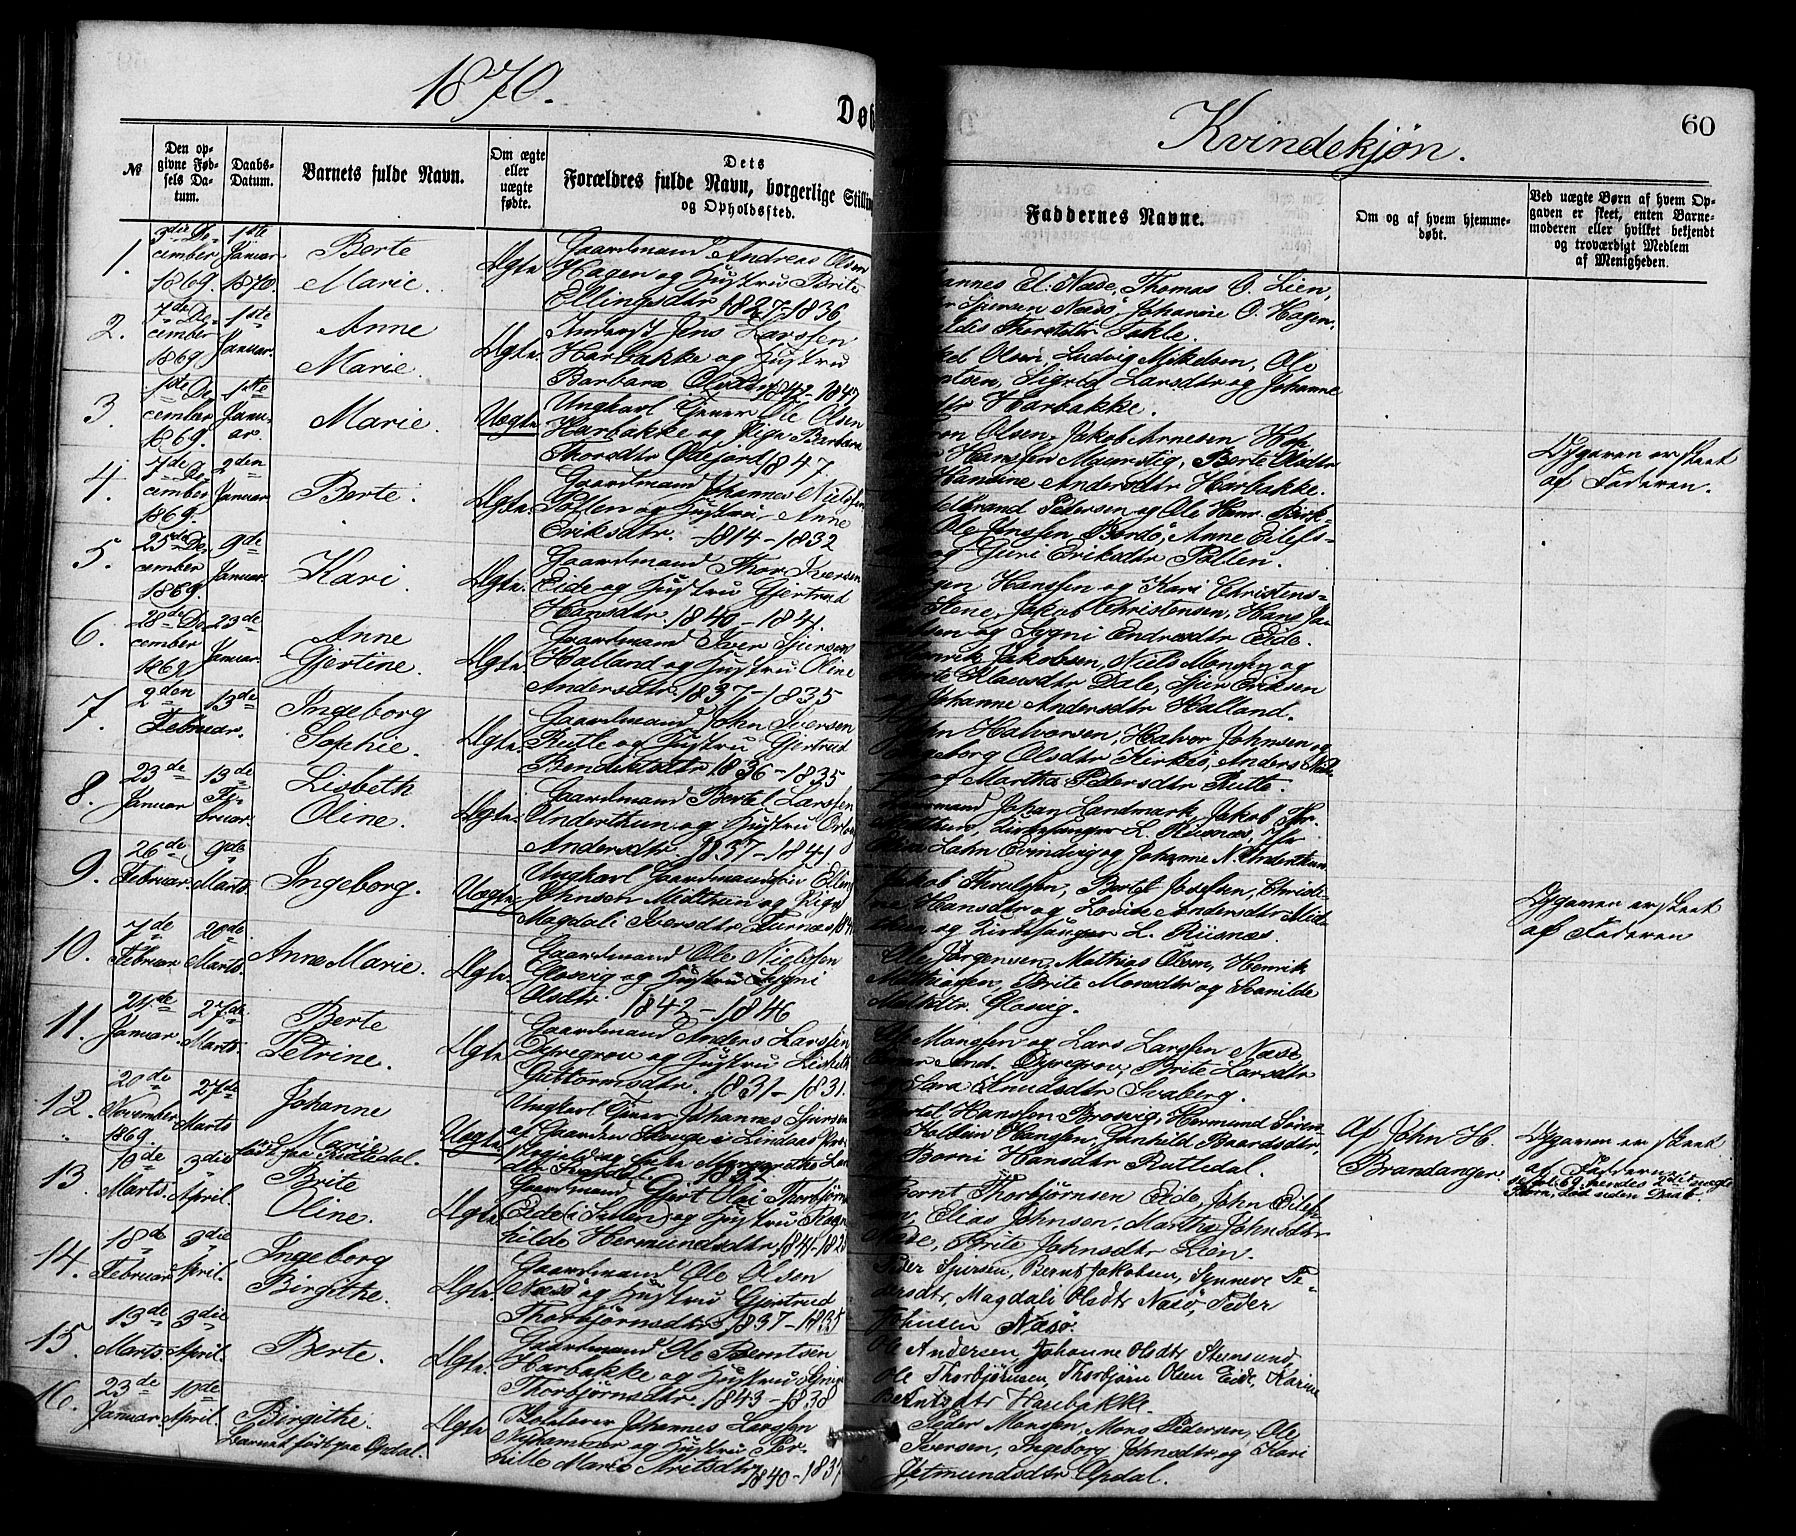 1870.
Døb
Kvindekjøn.
60
№
Den opgivne Fødsels Datum.
Daabs-Datum.
Barnets fulde Navn.
Om ægte eller uægte fødte.
Dets Forældres fulde Navn, borgerlige Stillin
og Opholdssted.
Faddernes Navne.
Om og af hvem hjemmedøbt.
Ved uægte Børn af hvem Opgaven er skeet, enten Barnemoderen eller hvilket bekjendt og troværdigt Medlem af Menigheden.
1.
3die December 1869.
1ste Januar 1870.
Berte Marie.
Ægte
Gaardmand Andreas Olsen
Hagen og Hustru Brite
Ellingsdtr. 1827-1836
annes El. Næse, Thomas O. Lien,
Sjursen Næsø, Johanne O. Hagen,
Thorsdtr Takle.
2.
7de December 1869.
1ste Januar.
Anne Marie.
Ægte.
Inderst Jens Larssen
Harbakke og Hustru
Barbara Olsdtr 1842-1847
Olsen, Ludvig Mikelsen, Ole
Sigrid Larsdtr og Johanne
dtr Harbakke.
3.
1ste December 1869.
1ste Januar.
Marie.
Uægte
Ungkarl Tjener Ole Olsen
Harbakke og Pige Barbara
Thorsdtr Ødejord 1847
Olsen, Jakob Arnesen Hop
Hanssen Mjurstig, Berte Olsdtr
Hansine Andersdtr Harbakke.
Opgaven er skeet
af Faderen.
4.
7de December 1869.
2den Januar.
Berte.
Ægte.
Gaardmand Johannes Nielssen
Pollen og Hustru Anne
Eriksdtr. 1814-1832
brand Pedersen og Ole Henr. Birk-
Ole Jenssen Bordø, Anne Eilefs-
og Guri Eriksdtr Pollen.
5.
25de December 1869.
9de Januar.
Kari
Ægte.
Gaardmand Thor Iversen
Eide og Hustru Gjertrud
Hansdtr. 1840-1841.
Hanssen og Kari Christens-
Stene, Jakob Christensen, Hans Ja-
og Sygni Endresdtr Eide.
6.
28de December 1869
23de Januar.
Anne Gjertine.
Ægte
Gaardmand Iver Sjursen
Halland og Hustru Oline
Andersdtr. 1837-1835
Henrik Jakobsen, Niels Monssen og
Klausdtr Dale, Sjur Eriksen
Johanne Andersdtr Halland.
7.
2den Februar.
13de
Ingeborg Sophie.
Ægte
Gaardmand John Iversen
Rutle og Hustru Gjertrud
Bendiktsdtr. 1836-1835
Halvorsen, Halvor Johnsen og
Ingeborg Olsdtr Kirkes, Anders
og Martha Pedersdtr Rutle.
8.
23de Januar
13de Februar.
Lisbeth Oline.
Ægte.
Gaardmand Bertel Larssen
Underthun og Hustru
Andersdtr. 1837-1841
Johan Landmark, Jakob
Kirkesanger L. Risnæs,
Lahn Evindvig og Johanne N. Underthun
9.
26de Februar.
9de Marts.
Ingeborg.
Uægte
Ungkarl Gaardmandssøn Elling
Johnsen Midthun og Pige
Magdali Iversdtr Furnæs 184
Jakob Therulssen, Bertel Josefsen, Christi-
Hansdtr og Lovise Andersdtr Mid-
og Kirkesanger L. Risnæs.
Opgaven er skeet
af Faderen
10.
7de Februar
20de Marts.
Anne Marie.
Ægte
Gaardmand Ole Nielssen
Glosvig og Hustru Sygni
Olsdtr. 1842-1846
Ole Jørgensen, Mathias Olsen, Henrik
Mathiassen, Brite Monsdtr og Gunilde
Glosvig.
11.
21de Januar.
27de Marts.
Berte Petrine.
Ægte
Gaardmand Anders Larssen
Dyregrov og Hustru Lisbeth
Guttormsdtr. 1831-1831.
Monssen og Lars Larssen Næse,
And. Dyregrov, Brite Larsdtr
og Sara Knudsdtr Svaberg.
12.
20de November 1869.
27de Marts
Johanne Marie
født paa Rutledal.
Uægte
Ungkarl Tjener Johannes Sjursen
af Gaarden Skuge i Lindaas Præ-
1832
Bertel Hanssen Brosvig, Hermund Søren-
Kolbein Hanssen, Gunhild Baardsdtr
Borni Hansdtr Rutledal.
Af John H.
Brandanger.
Opgaven er skeet
af Faderen
13
10de Marts.
3die April.
Brite Oline.
Ægte
Gaardmand Gjert Olai Thorbjørns
Eide i Sulen og Hustru Ragn
hilde Hermundsdtr. 1841-1828
Bernt Thorbjørnsen Eide, John Eilef-
Elias Johnsen, Martha Johnsdtr
Næse, Brite Johnsdtr Lien.
14.
18de Februar
3die April.
Ingeborg Birgithe.
Ægte.
Gaardmand Ole Olsen
Næsø og Hustru Gjertrud
Thorbjørnsdtr. 1837-1835
Peder Sjursen, Bernt Jakobsen, Synneve Pe-
dersdtr, Magdali Olsdtr Næsø, Peder
Johnsen Næsø.
15.
13de Marts.
3die April.
Berte.
Ægte.
Gaardmand Ole Berntsen
Harbakke og Hustru
Thorbjørnsdtr. 1843-1838
Ole Andersen, Johanne Olsdtr Steinsund,
Ole Thorbjørnsen, Thorbjørn Olsen Eide, Karine
Berntsdtr Harbakke.
16.
23de Januar.
10de April.
Birgithe.
Barnet født paa Opdal.
Ægte
Johannes Larssen
Nyhammer og Hustru Per-
nille Marie
1840-1837
Peder Monssen, Mons Pedersen, Ole
Iversen, Ingeborg Johnsdtr og Kari
Jetmundsdtr Opdal.